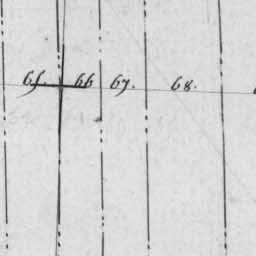 65 66 67. 68.